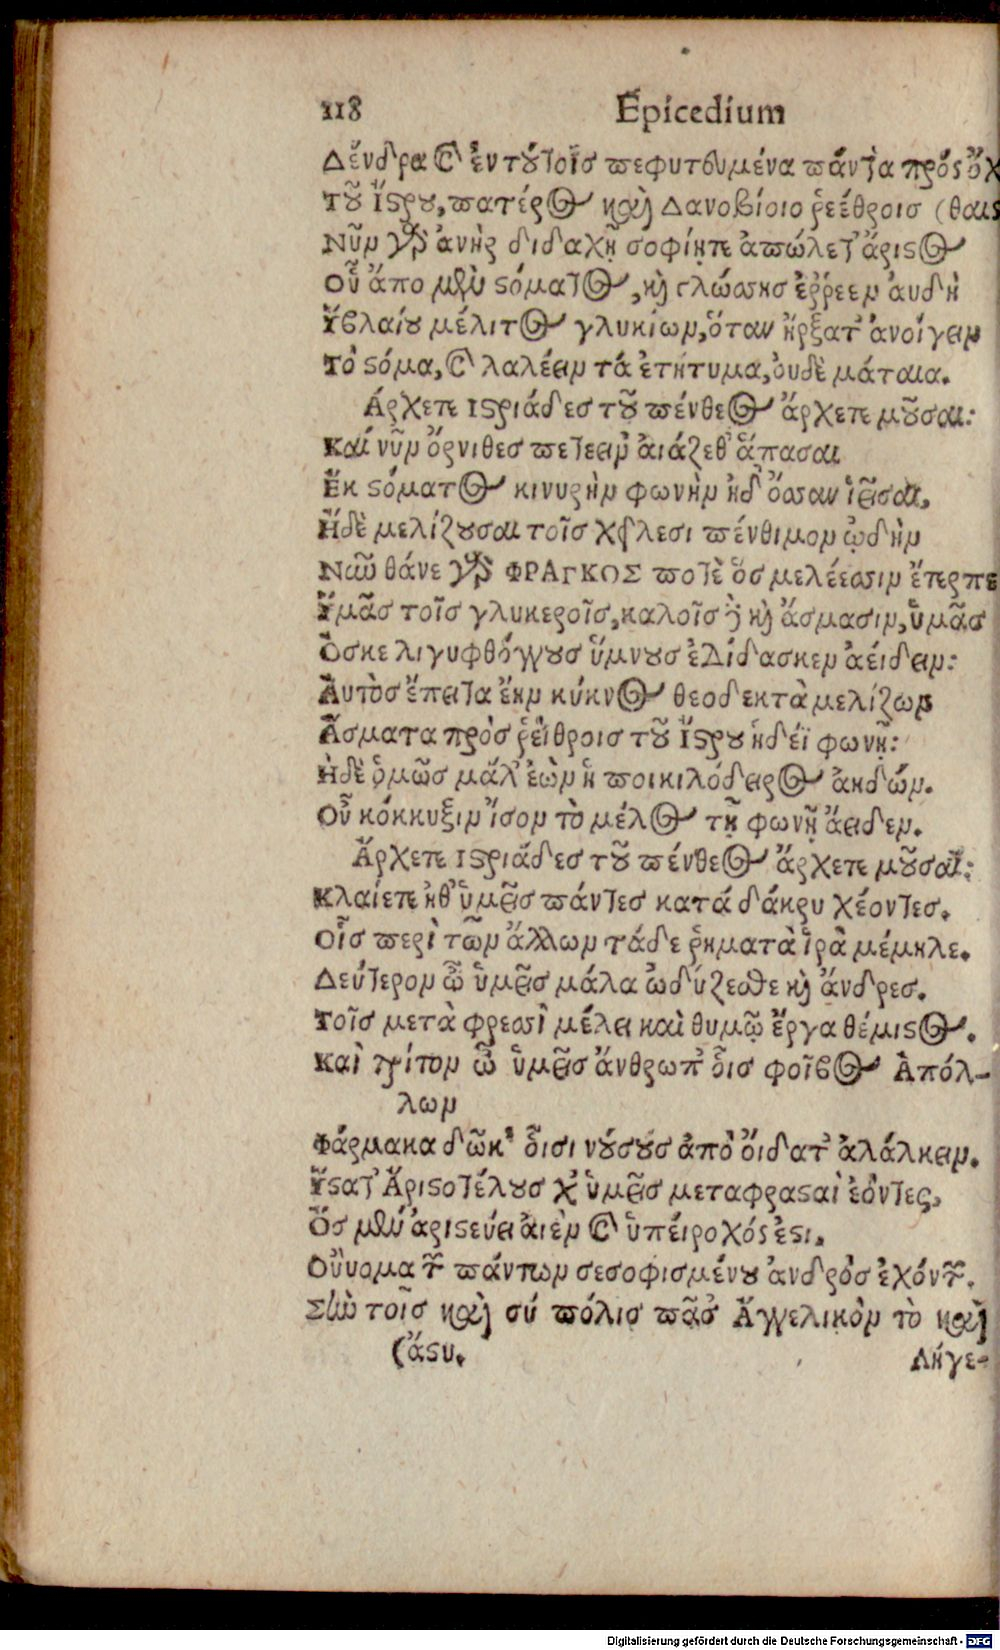 118 Epicedium
Δένδρα κὶ ἐν τούτοῖς πεφυτουμένα πάντα πρός ὄχ
τοῦ Ἴστρου, πατέρος καὶ Δανοβίοιο ῥεέθροις (θαις
Νῦν γὰρ ἀνὴρ διδαχῇ σοφίῃτε ἀπώλετ' ἄριστος
Οὗ ἄπο μὲν στόματος, κὶ γλώσσης ἐῤῥεεν ἀυδὴ
Ὑβλαίου μέλιτος γλυκίων, ὅταν ἤρξατ' ἀνοίγειν
Τὸ στόμα, κὶ λαλέειν τά ἐτήτυμα, ὀυδὲ μάταια.
Ἀρχετε ἰστριάδες τοῦ πένθεος ἄρχετε μοῦσαι:
Καί νῦν ὄρνιθες πετεειν̓ ἀιάζεθ' ἅπασαι
Ἐκ στόματος κινυρὴν φωνὴν ἠδ' ὄσσαν ἱεῖσαι,
Ἠδὲ μελίζουσαι τοῖς χείλεσι πένθιμον ᾠδὴν
Νῶϊ θάνε γὰρ ΦΡΑΓΚΟΣ ποτὲ ὅς μελέεσσιν ἔτερπε
Ὑμᾶς τοῖς γλυκεροῖς, καλοῖς τὲ κὶ ἄσμασιν, ὑμᾶς
Ὅσκε λιγυφθόγγους ὕμνους ἐδίδασκεν ἀείδειν:
Ἀυτὸς ἔπειτα ἔην κύκνος θεοδεκτὰ μελίζων
Ἄσματα πρὸς ῥείθροις τοῦ Ἴστρου ἡδέϊ φωνῇ:
Ἠδὲ ὁμῶς μάλ' ἐὼν ἡ ποικιλόδειρος ἀηδών.
Οὗ κόκκυξιν ἴσον τὸ μέλος τῇ φωνῇ ἄειδεν.
Ἄρχετε ἰστριάδες τοῦ πένθεος ἄρχετε μοῦσαι:
Κλαίετε ἠθ' ὑμεῖς πάντες κατά δάκρυ χέοντες.
Οἷς περὶ τῶν ἄλλων τάδε ῥηματὰ ἱρὰ μέμηλε.
Δεύτερον ὦ ὑμεῖς μάλα ὠδύζεσθε κὶ ἄνδρες.
Τοῖς μετὰ φρεσσὶ μέλει καὶ θυμῷ ἔργα θέμιστος.
Καὶ τρίτον ὦ ὑμεῖς ἄνθρωπ' ὅις φοῖβος Ἀπόλ-
λων
Φάρμακα δῶκ' ὅισι νόυσους ἀπὸ ὄιδατ' ἀλάλκειν.
Ὕστατ' Ἀριστοτέλους χ' ὑμεῖς μεταφρασταὶ ἐόντες,
Ὅς μὲν ἀριστεύει ἀιὲν κὶ ὑπείροχός ἐστι.
Οὔνομα τῶν πάντων σεσοφισμένου ἀνδρὸς ἐχόντων.
Σὺν τοῖς καὶ σύ πόλις πᾶσ' Ἀγγελικὸν τὸ καὶ
(ἄστυ. Λήγε-
Digitalisierung gefördert durch die Deutsche Forschungsgemeinschaft - DFG